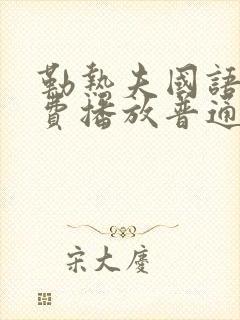 勤熱夫國語
費播放普通
宋大慶